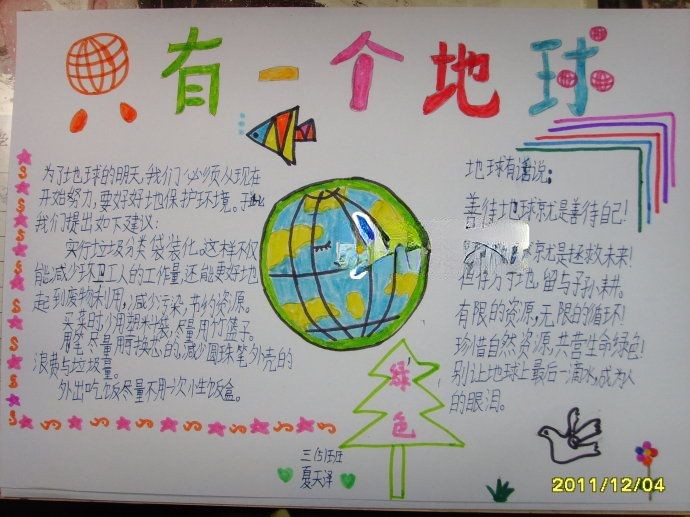 只有一个地球
为了地球的明天,我们必须从现在
开始努力,要好好地保护环境。于此
我们提出如下建议:
实行垃圾分类袋装化。这样不仅
能减少环卫工人的工作量,还能更好地
起到废物利用,减少污染,节约资源。
买菜时少用塑料袋,尽量用竹篮子。
用笔尽量用可换芯的,减少圆珠笔外壳的
浪费与垃圾量。
外出吃饭尽量不用一次小生饭盒。
地球有话说:
善待地球就是善待自己!
球就是拯救未来!
方寸地,留与子孙耕。
有限的资源,无限的循环!
珍惜自然资源,共营生命绿色!
别让地球上最后一滴水,成为人
的眼泪。
绿色
三(5)班
夏天泽
2011/12/04